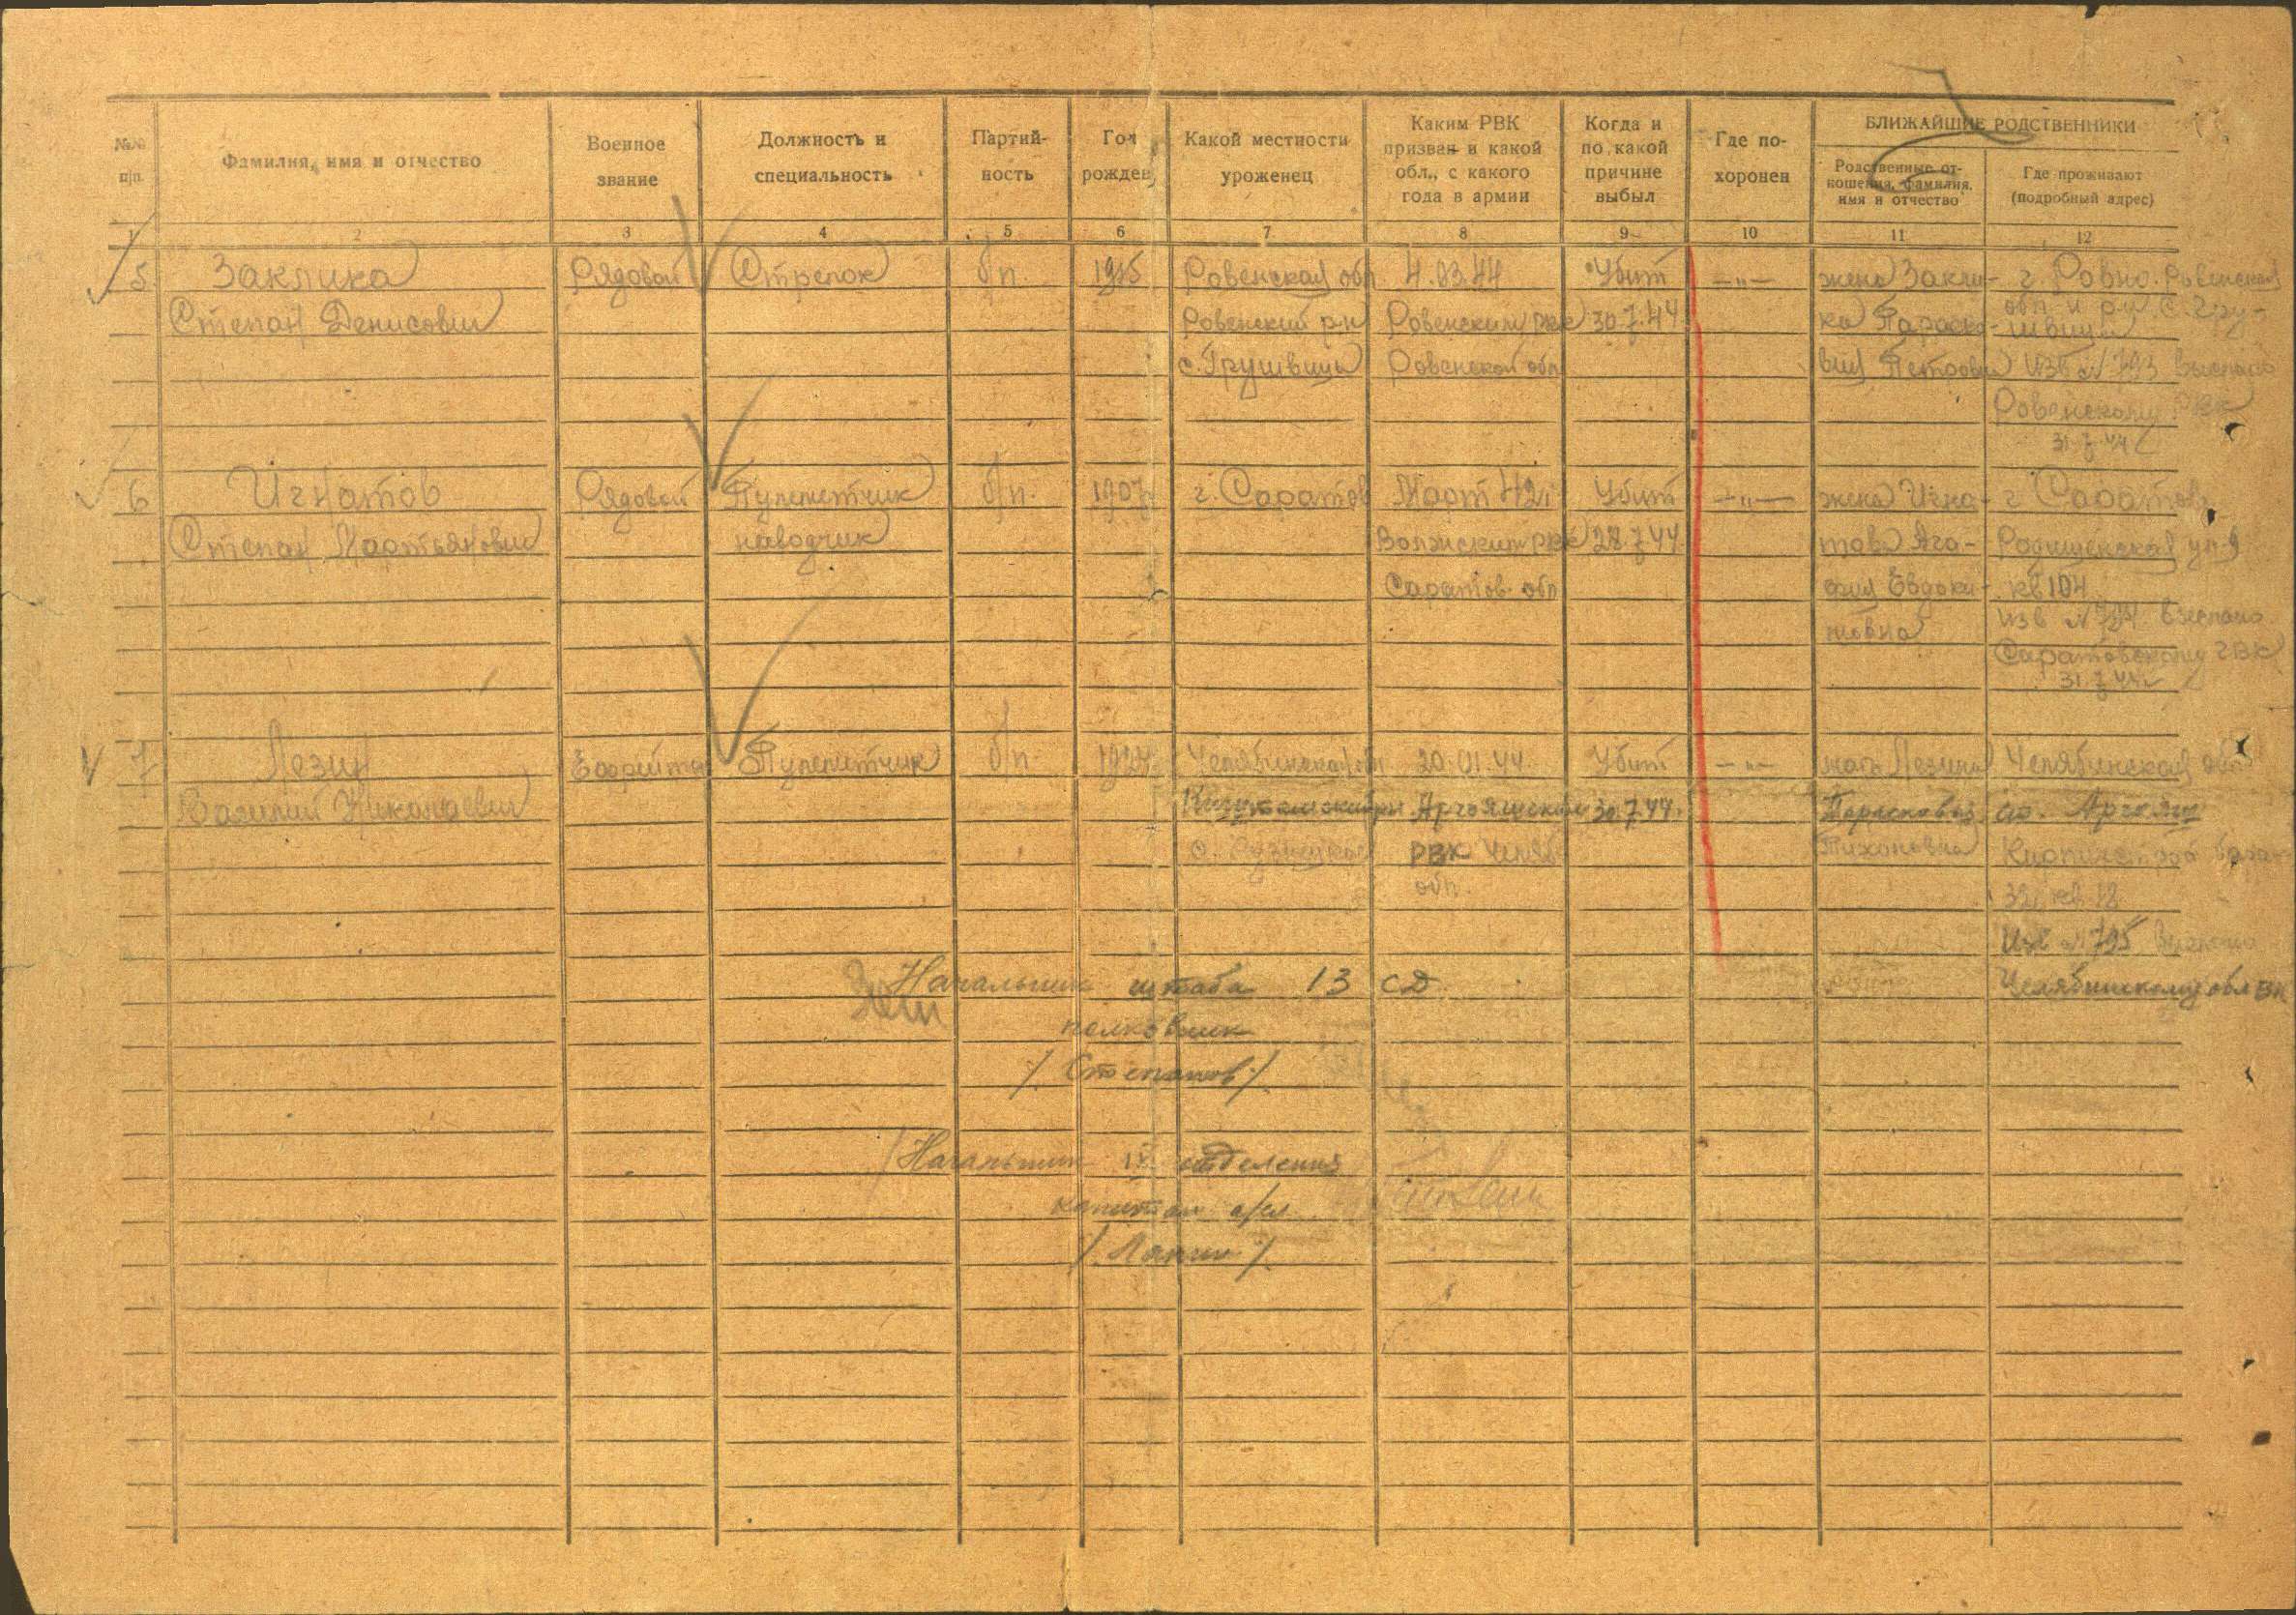 №№ п/п.
Фамилия, имя и отчество
Военное звание
Должность и специальность
Партий-ность
Год рожден
Какой местности уроженец
Каким РВК призван и какой обл., с какого года в армии
Когда и по какой причине выбыл
Где по-хоронен
БЛИЖАЙШИЕ РОДСТВЕННИКИ
Родственные от-ношения, фамилия, имя и отчество
Где проживают (подробный адрес)
1 2 3 4 5 6 7 8 9 10 11 12
5 Заклика Рядовой Стрелок б/п. 1915 Ровенская обл 4.03.44 Убит —„— жена Закли- г. Ровно. Ровенская
Степан Денисович Ровенский р-н Ровенским РВК 30.7.44 ка Параско- обл и р-н. с. Гру-
швицы
с. Грушвицы Ровенской обл вия Петровна Изв №793 выслано
Ровенскому РВК
31.7.44
6 Игнатов Рядовой Пулеметчик б/п. 1907 г. Саратов Март 42г Убит —„— жена Игна- г Саратов
Степан Мартьянович наводчик Волжским РВК 28.7.44. това Ага- ул-9
Саратов. обл фия Евдоки- кв 104
мовна Изв №794 выслано
Саратовскому ГВК
31.7.44
7 Лезин Ефрейтор Пулеметчик б/п. 1924 Челябинская обл 20.01.44. Убит —„— мать Лезина Челябинская обл
Василий Николаевич Аргаяшским 30.7.44. Парасковья ст. Аргаяш
с. РВК Челяб Тихоновна барак
обл. 32, кв 18
Изв №795 выслано
Начальник штаба 13 СД Челябинскому облВК
полковник
/Степанов/
Начальник IV отделения
капитан а/сл.
/Лапин/